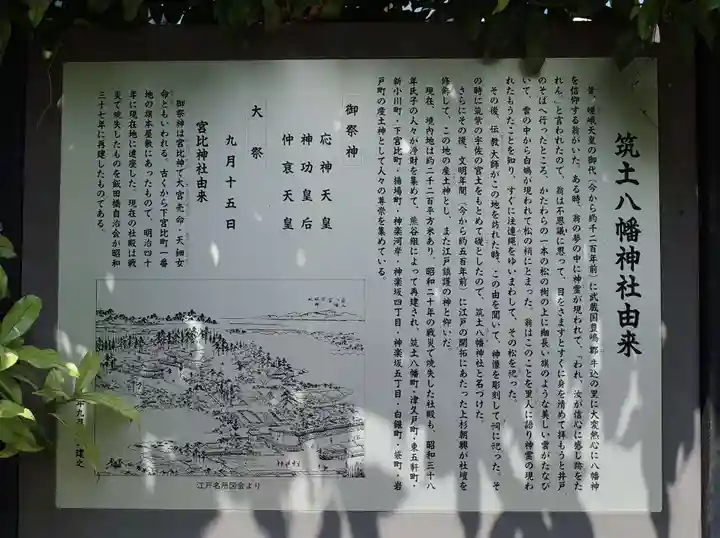 筑土八幡神社由来
昔、嵯峨天皇の御代（今から約千二百年前）に武蔵国豊嶋郡牛込の里に大変熱心に八幡神
を信仰する翁がいた。ある時、翁の夢の中に神霊が現われて、「われ、汝が信心に感じ跡をた
れん。」と言われたので、翁は不思議に思って、目をさますとすぐに身を清めて拝もうと井戸
のそばへ行ったところ、かたわらの一本の松の樹の上に細長い旗のような美しい雲がたなび
いて、雲の中から白鳩が現われて松の梢にとまった。翁はこのことを里人に語り神霊の現わ
れたもうたことを知り、すぐに注連縄をゆいまわして、その松を祀った。
その後、伝教大師がこの地を訪れた時、この由を聞いて、神像を彫刻して祠に祀った。そ
の時に筑紫の宇佐の宮土をもとめて礎としたので、筑土八幡神社と名づけた。
さらにその後、文明年間（今から約五百年前）に江戸の開拓にあたった上杉朝興が社壇を
修飾して、この地の産土神とし、また江戸鎮護の神と仰いだ。
現在、境内地は約二千二百平方米あり、昭和二十年の戦災で焼失した社殿も、昭和三十八
年氏子の人々が浄財を集めて、熊谷組によって再建され、筑土八幡町・津久戸町・東五軒町・
新小川町・下宮比町・揚場町・神楽河岸・神楽坂四丁目・神楽坂五丁目・白銀町・袋町・岩
戸町の産土神として人々の尊崇を集めている。
御祭神
応神天皇
神功皇后
仲哀天皇
大祭
九月十五日
宮比神社由来
御祭神は宮比神で大宮売命・天鈿女
命ともいわれる。古くから下宮比町一番
地の旗本屋敷にあったもので、明治四十
年に現在地に遷座した。現在の社殿は戦
災で焼失したものを飯田橋自治会が昭和
三十七年に再建したものである。
江戸名所図会より
年九月
建之